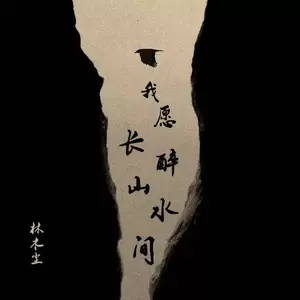 我愿长醉山水间
林木尘